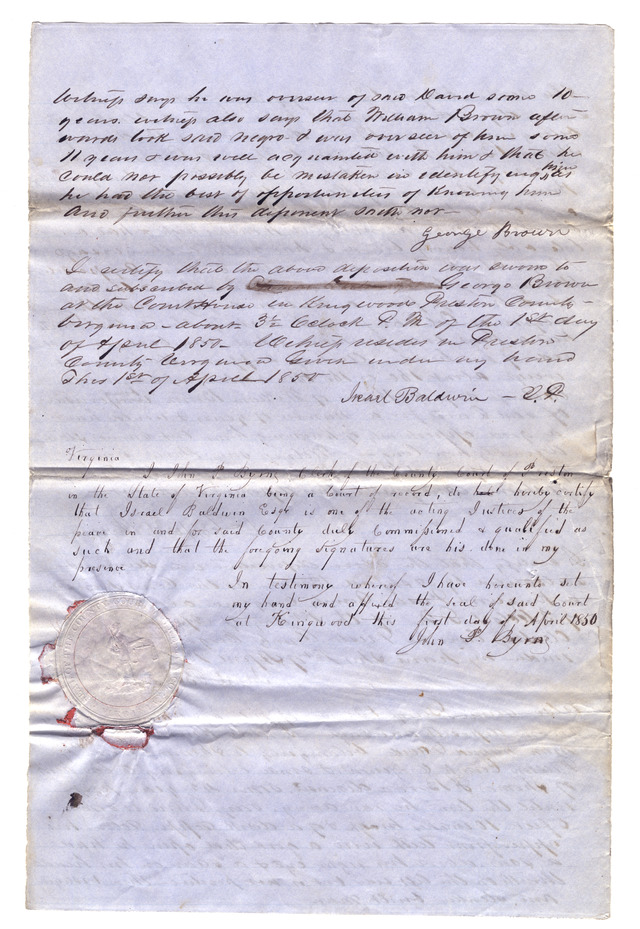 Witness says he was overseer of said David some 10
years witness also says that William Brown after
wards took said negro & was overseer of him some
11 years & was well acquainted with him & that he
could not possibly be mistaken in edentifying him as
he had the best of opportunities of Knowing him
And further this deponent saith not
George Brown
I certify that the above deposition was sworn to
and subscribed by George Brown
at the Court House in Kingwood Preston County
Virginia about 3½ Oclock P. M of the 1st day
of April 1850 Which resides in Preston
County Virginia Given under my hand
This 1st of April 1850
Isreal Baldwin J.P.
Virginia
I John P. Byrne Clerk of the County Court of Preston
in the State of Virginia being a Court of record, do hereby certify
that Israel Baldwin Esqr is one of the acting Justices of the
peace in and for said County duly Commissioned & qualified as
such and that the foregoing signatures are his done in my
presence
In testimony whereof I have hereunto set
my hand and affixed the seal of said Court
at Kingwood this first day of April 1850
John P. Byrne